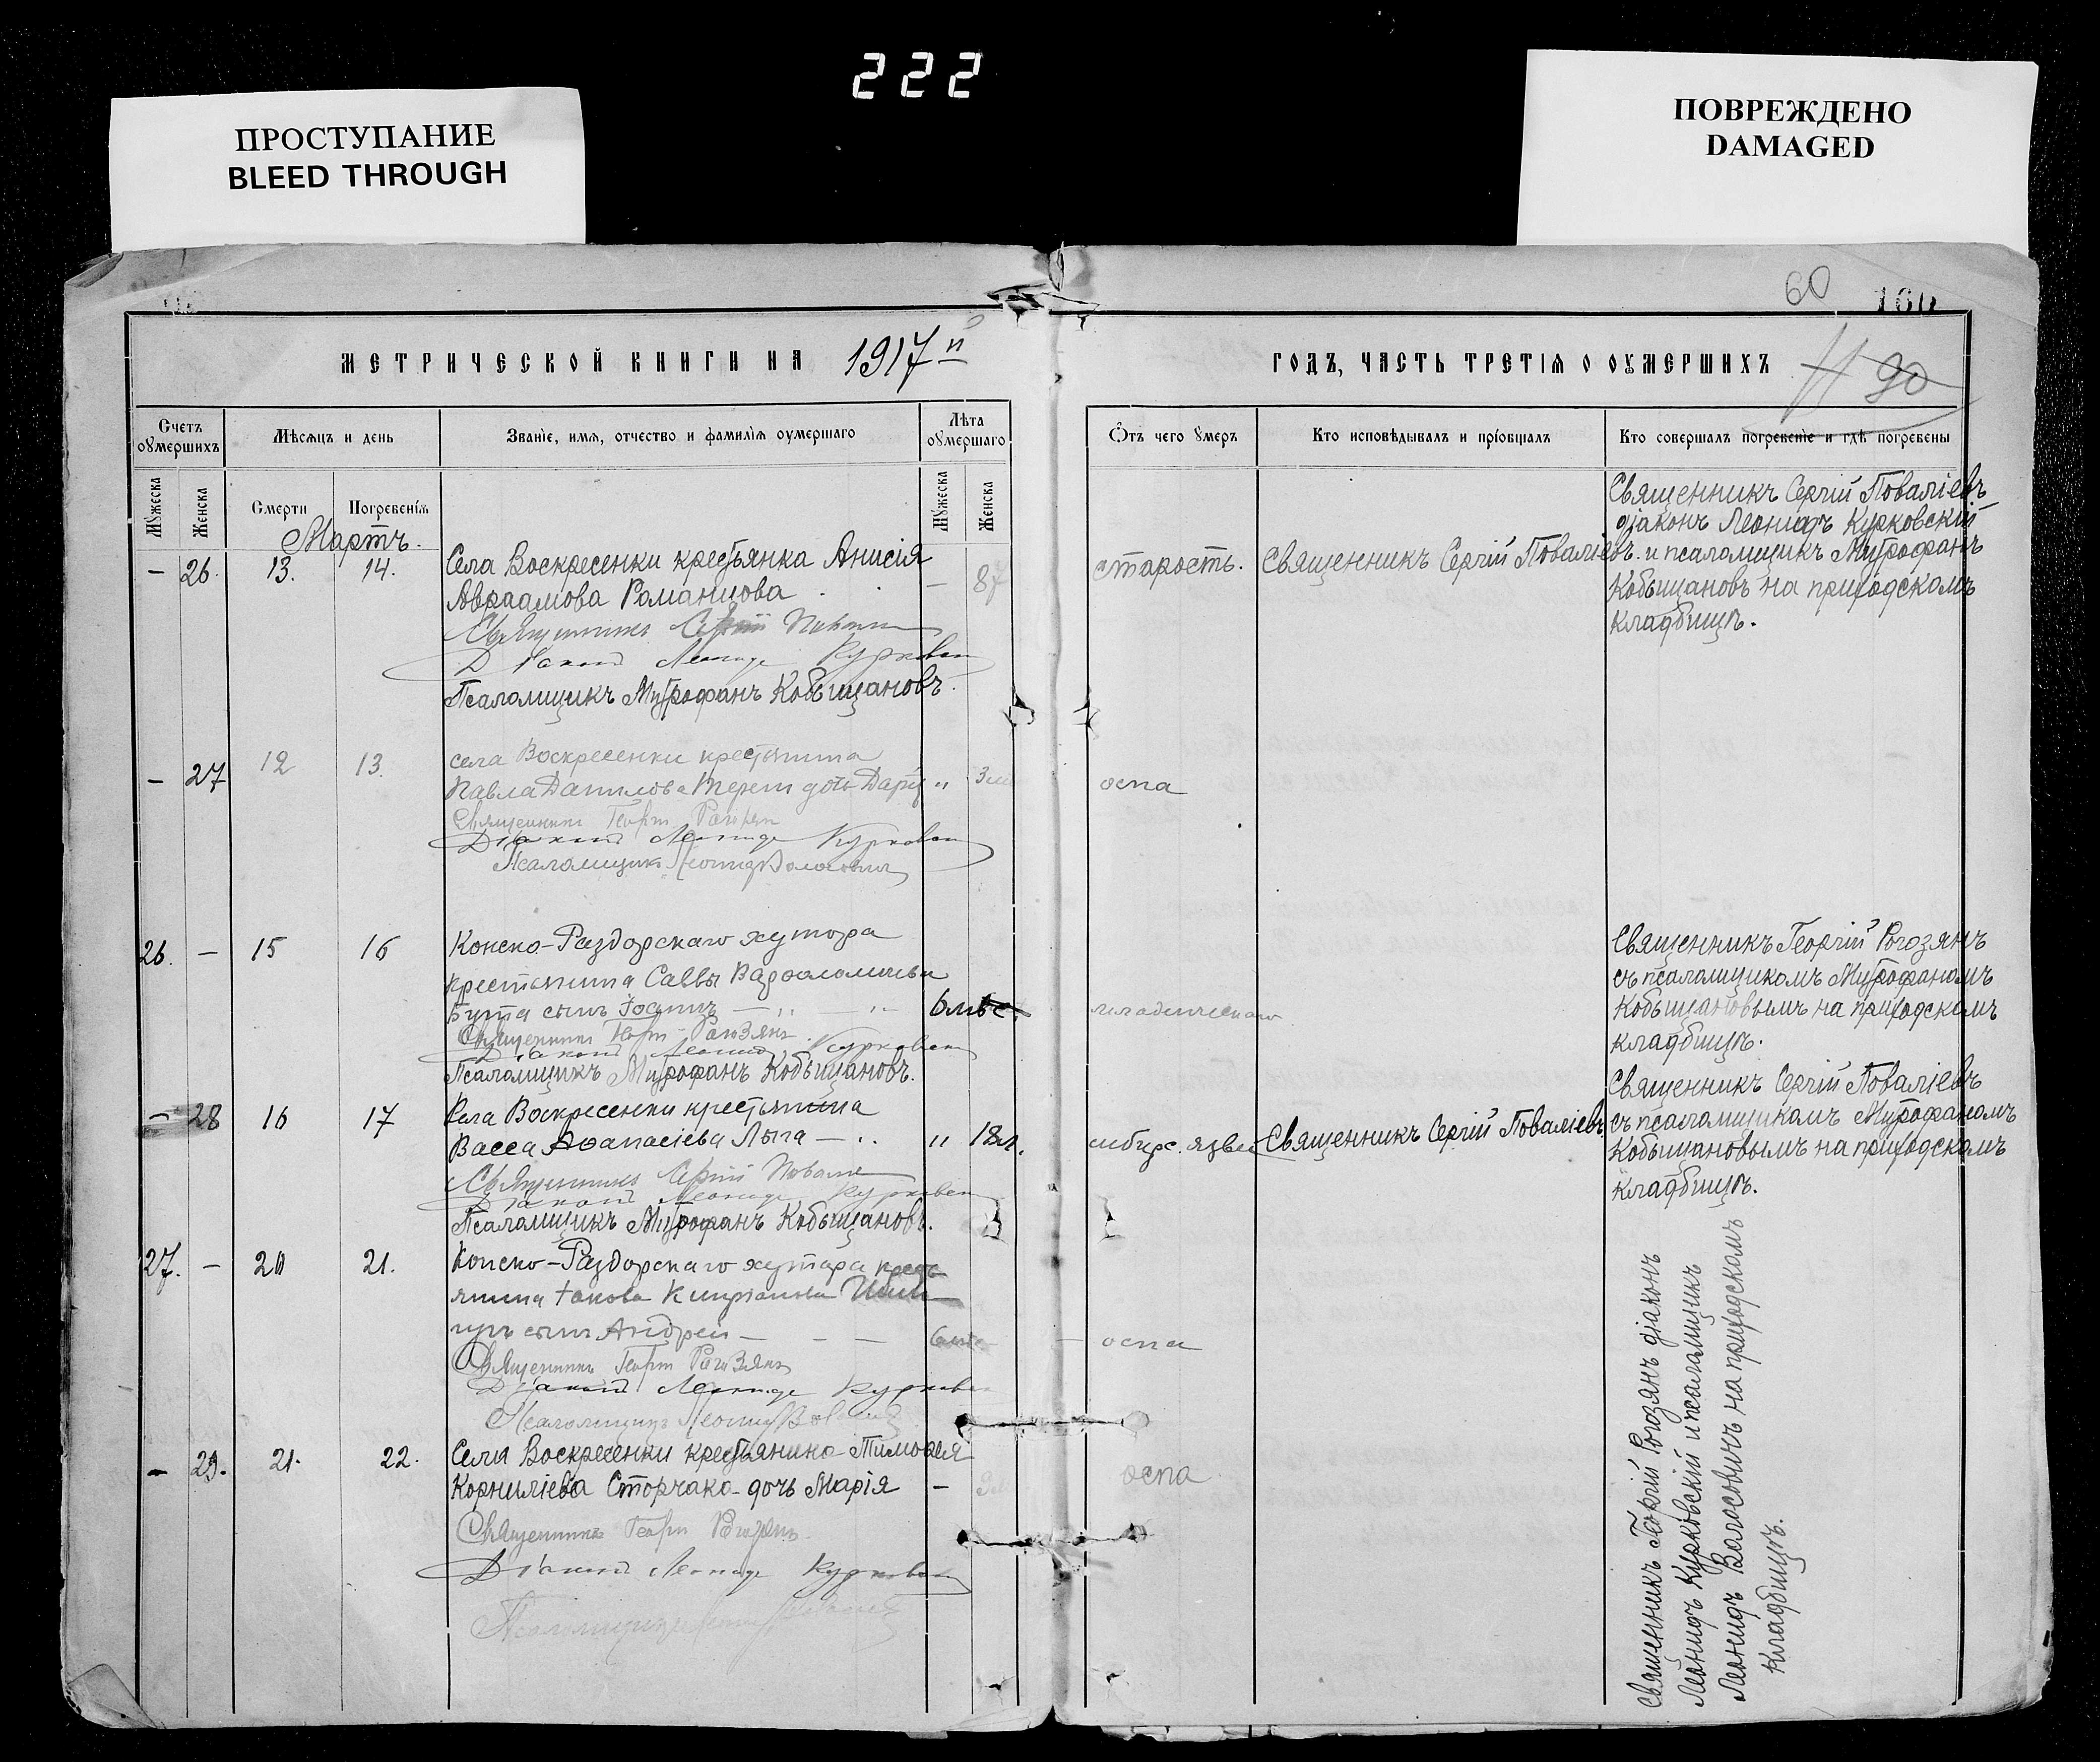 222
ПРОСТУПАНИЕ
BLEED THROUGH
ПОВРЕЖДЕНО
DAMAGED
60
160
МЕТРИЧЕСКОЙ КНИГИ НА 1917й
ГОДЪ, ЧАСТЬ ТРЕТІѦ О ОУМЕРШИХЪ
90
Счетъ оумершихъ
Мѣсѧцъ и день
Званіе, имѧ, отчество и фамиліѧ оумершаго
Лѣта оумершаго
Ѿтъ чего умеръ
Кто исповѣдывалъ и пріобщалъ
Кто совершалъ погребеніе и гдѣ погребены
Мужеска
Женска
Смерти
Погребеніѧ
Мужеска
Женска
Мартъ.
— 26. 13. 14.
Села Воскресенки крестьянка Анисія
Авраамова Романцова — 87
Священникъ Сергій
Діаконъ Леонидъ Курковскій
Псаломщикъ Митрофанъ Кобыщановъ.
старость.
Священникъ Сергій Поваліевъ.
Священникъ Сергій Поваліевъ
діаконъ Леонидъ Курковскій
и псаломщикъ Митрофанъ
Кобыщановъ на приходскомъ
кладбищѣ.
— 27 12 13.
села Воскресенки крестьянина
Павла Данилова дочь „
Священникъ Георгій Рогозянъ
Діаконъ Леонидъ Курковскій
Псаломщикъ Леонид Волосовичъ
оспа
26. — 15 16
Конско-Раздорскаго хутора
крестьянина Саввы Варѳоломеева
Бута сынъ Іоаннъ — „ — „ 6 мѣс.
Священникъ Георгій Рогозянъ
Діаконъ Леонидъ Курковскій
Псаломщикъ Митрофанъ Кобыщановъ.
младенческаго
Священникъ Георгій Рогозянъ
съ псаломщикомъ Митрофаномъ
Кобыщановымъ на приходскомъ
кладбищѣ.
— 28 16 17
Села Воскресенки
Васса Аѳанасіева — „ 18 л.
Священникъ Сергій
Діаконъ Леонидъ Курковскій
Псаломщикъ Митрофанъ Кобыщановъ.
сибирс. язвы
Священникъ Сергій Поваліевъ.
Священникъ Сергій Поваліевъ
съ псаломщикамъ Митрофаномъ
Кобыщановымъ на приходскомъ
кладбищѣ.
27. — 20 21.
Конско-Раздорскаго хутора крест
янина Іакова Кипріанова
сынъ Андрей — — —
Священникъ Георгій Рогозянъ
Діаконъ Леонидъ Курковскій
Псаломщикъ Леонид
— оспа
— 29. 21. 22.
Села Воскресенки крестьянина Тимоѳея
Корниліева Сторчака дочь Марія —
Священникъ Георгій Рогозянъ
Діаконъ Леонидъ Курковскій
Псаломщикъ
оспа
Священникъ Георгій Рогозянъ діаконъ
Леонидъ Курковскій и псаламщикъ
Леонидъ Волосовичъ на приходскомъ
кладбищѣ.